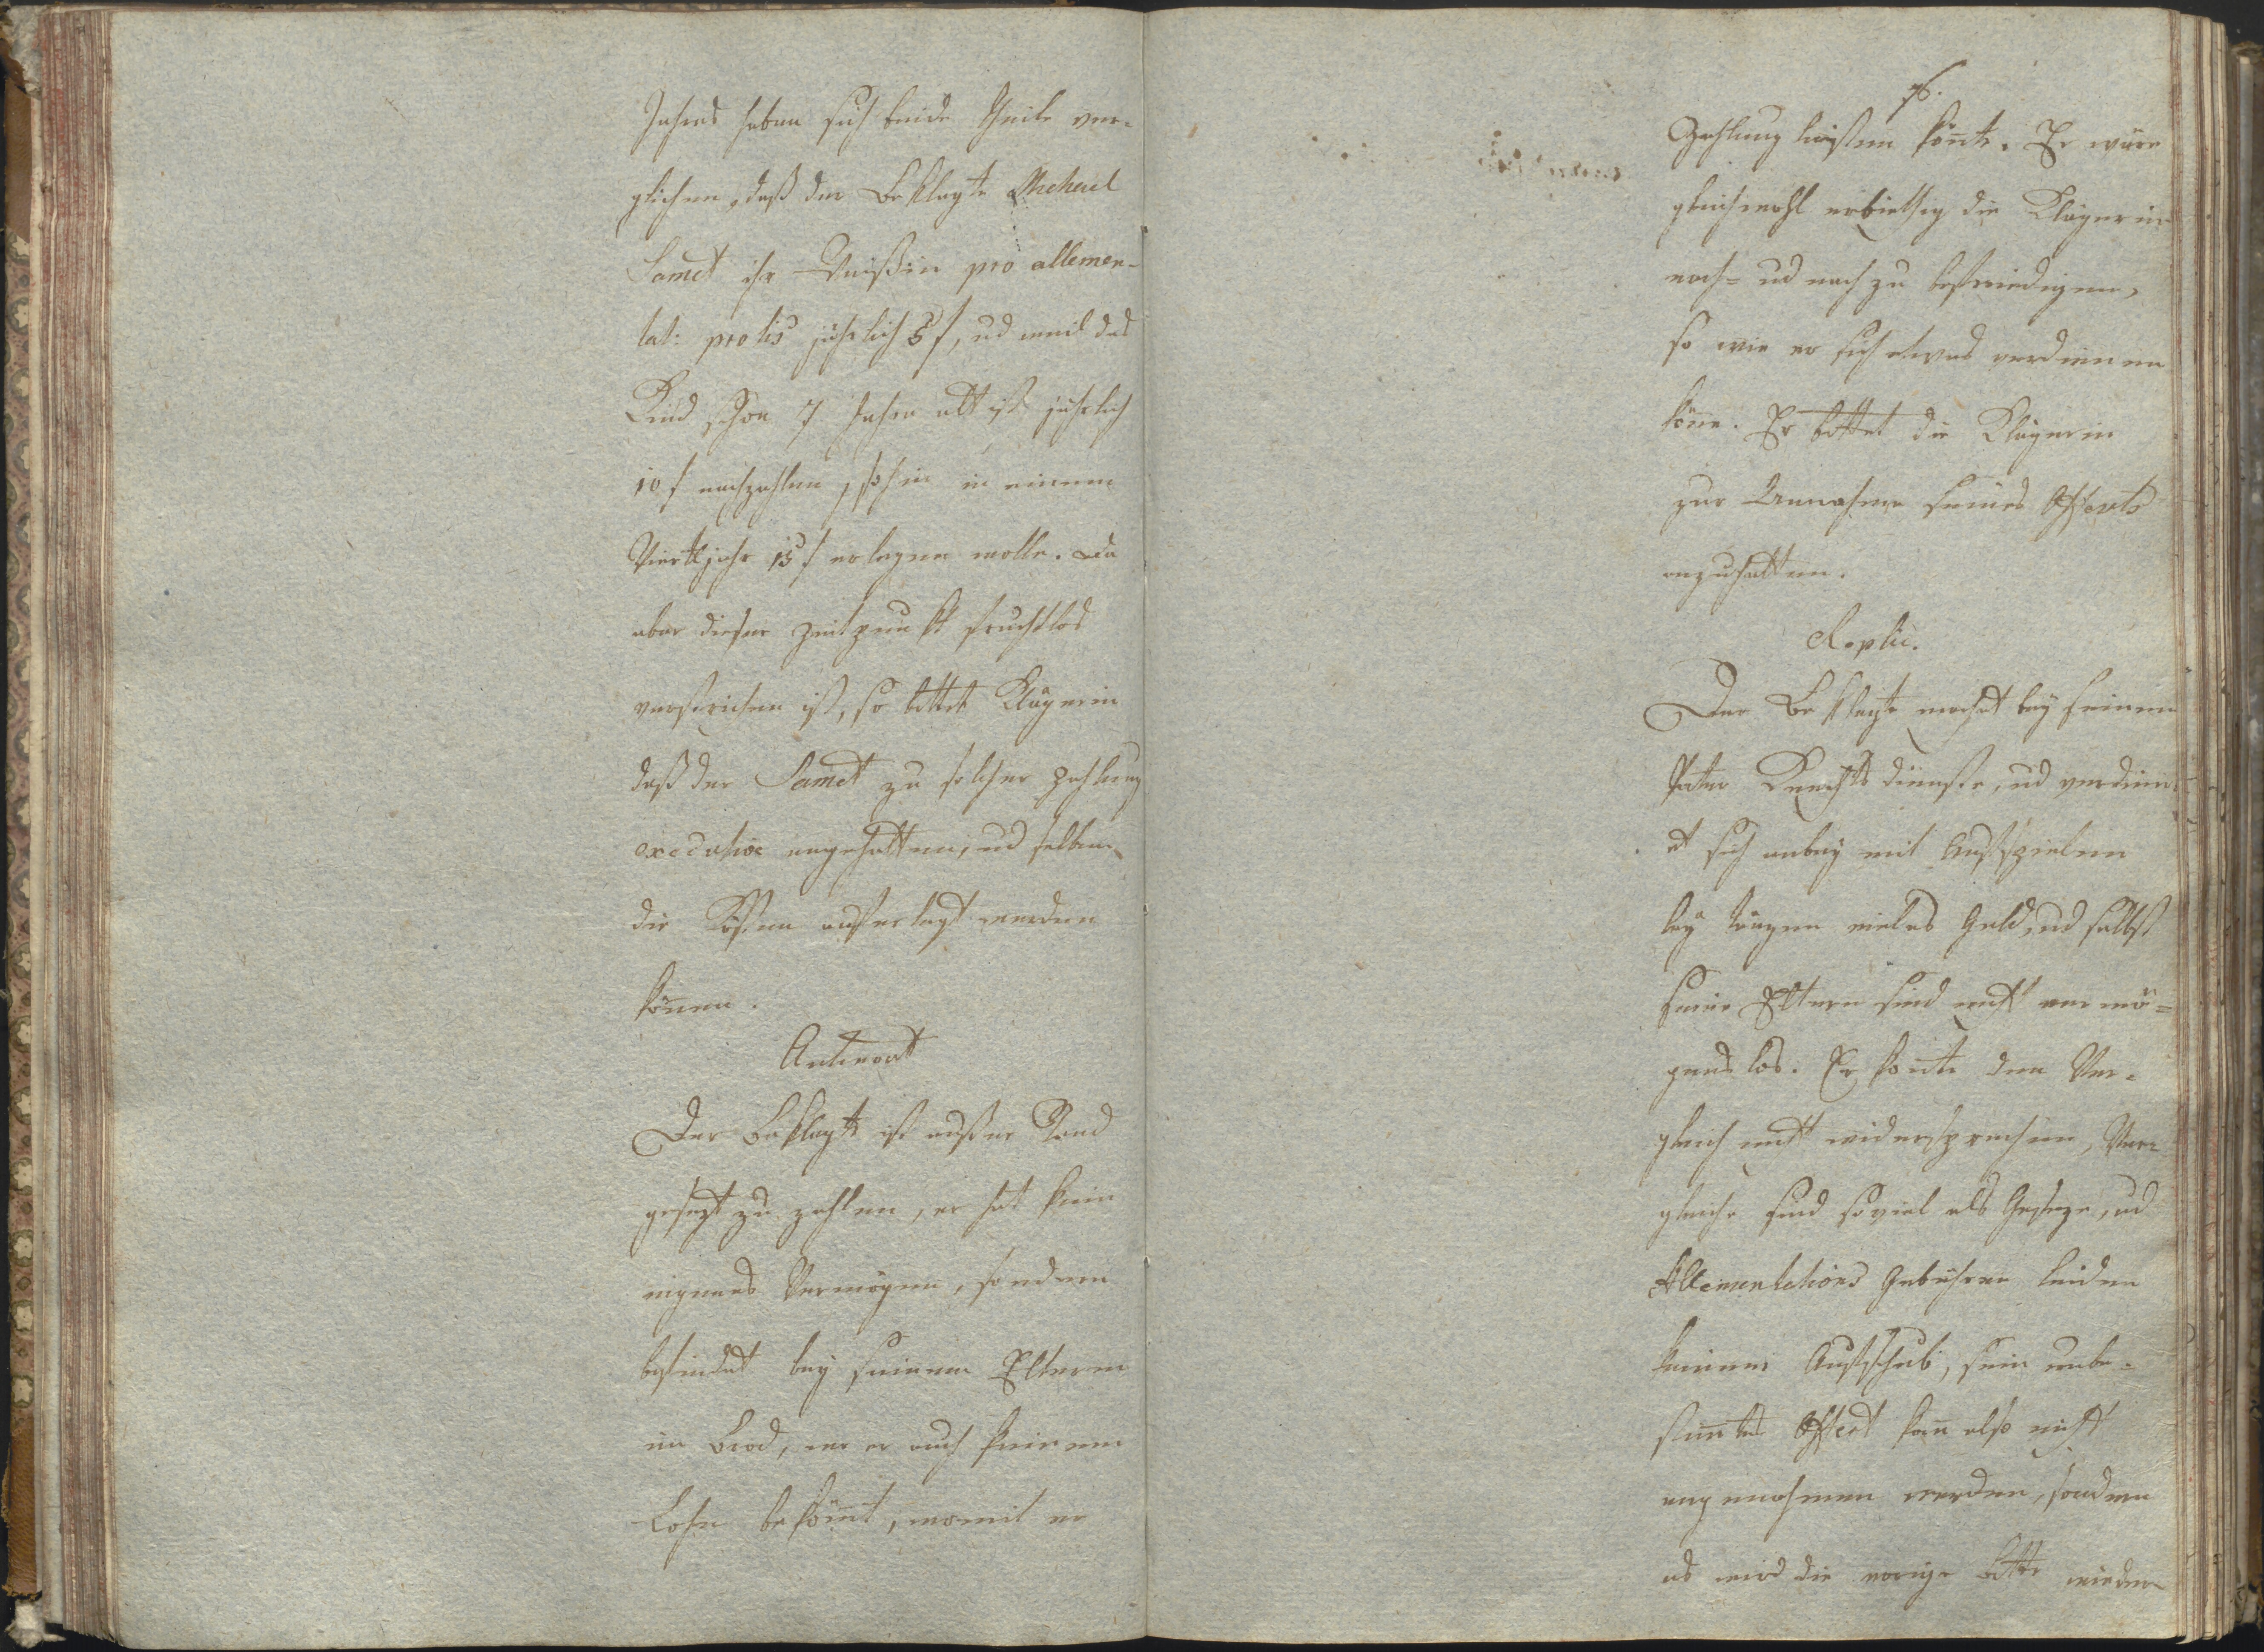 Jahres haben sich beide Theile ver-
glichen, daß der Beklagte Michael
Samet ihr pro allemen-
tat: prolis jährlich 5 f, ud weil das
Kind schon 7 Jahre alt ist jährlich
10 f nachzahlen, sohin in einem
Viertljahr 15 f erlegen wolle. Da
aber dieser Zeitpunkt fruchtlos
verstrichen ist, so bittet Klägerin
daß der Samet zu solcher Zahlung
executive angehalten, ud selbem
die Kösten auferlegt werden
können.
Antwort
Der Beklagte ist außer Stand
gesezt zu zahlen, er hat kein
eigenes Vermögen, sondern
befindet bey seinen Eltern
im Brod, wo er auch keinen
Lohn bekömt, womit er
76.
Zahlung leisten könte. Er wäre
gleichwohl erbiethig die Klägerin
nach- ud nach zu befriedigen,
so wie er sich etwas verdienen
köne. Er bittet die Klägerin
zur Annahme seines Offerts
anzuhalten.
Replic.
Der Beklagte macht bey seinem
Vater Knechts dienste, ud verdien-
et sich anbey mit Aufspielen
bey Tänzen vieles Geld, ud selbst
seine Eltern sind nicht vermö-
genslos. Er konte den Ver-
gleich nicht widersprechen, Ver-
gleiche sind soviel als Geseze, ud
Allementations Gebühren leiden
keinen Aufschub, sein unbe-
stimtes Offert kan also nicht
angenohmen werden, sondern
es wird die vorige Bitte wieder-